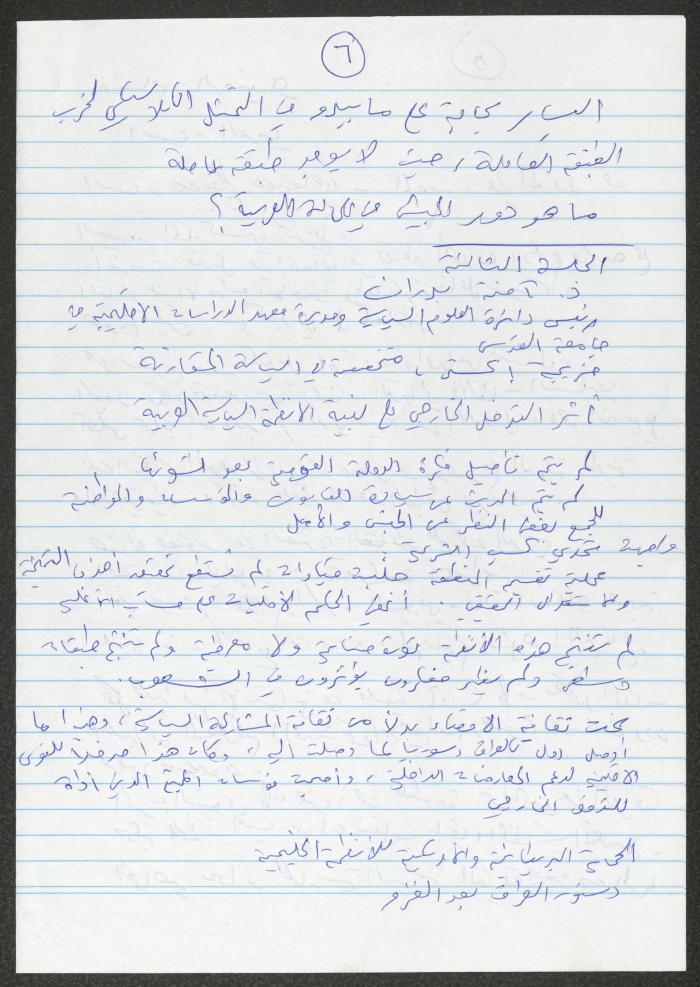 ٦
اليسار بحاجة على ما يبدو في التمثيل الكلاسيكي لحزب
الطبقة العاملة، حيث لا يوجد طبقة عاملة
ما هو دور الجيش في الحالة العربية؟
الجلسة الثالثة
د. آمنة بدران
رئيس دائرة العلوم السياسية ومديرة معهد الدراسات الاقليمية في
جامعة القدس
خريجة، متخصصة في السياسة المقارنة
أثر التدخل الخارجي على بنية الانظمة السياسية العربية
لم يتم تأصيل فكرة الدولة القومية بعد نشوئها
لم يتم الحديث عن سيادة القانون والمؤسسات والمواطنة
للجميع بغض النظر عن الجنس والأصل
واجهت تحدي كسب الشرعية،
عملية تقسيم المنطقة خلقت قيادات لم تستطع تحقيق اهداف التنمية
والاستقلال الحقيقي. أنماط الحكم لأقليات على حساب الأغلبية
لم تنتج هذه الأنظمة ثورة صناعية ولا معرفية ولم تنتج طبقات
وسطى ولم يظهر مفكرون يؤثرون في الشعوب.
نمت ثقافة الاقصاء بدلا من ثقافة المشاركة السياسية، وهذا ما
أوصل دول كالعراق وسوريا لما وصلت اليه، وكان هذا مدخلا للقوى
الاقليمية لدعم المعارضات الداخلية، وأصبحت مؤسسات المجتمع المدني أداة
للتدخل الخارجي
الحماية البريطانية والامريكية للأنظمة الخليجية
دستور العراق بعد الغزو